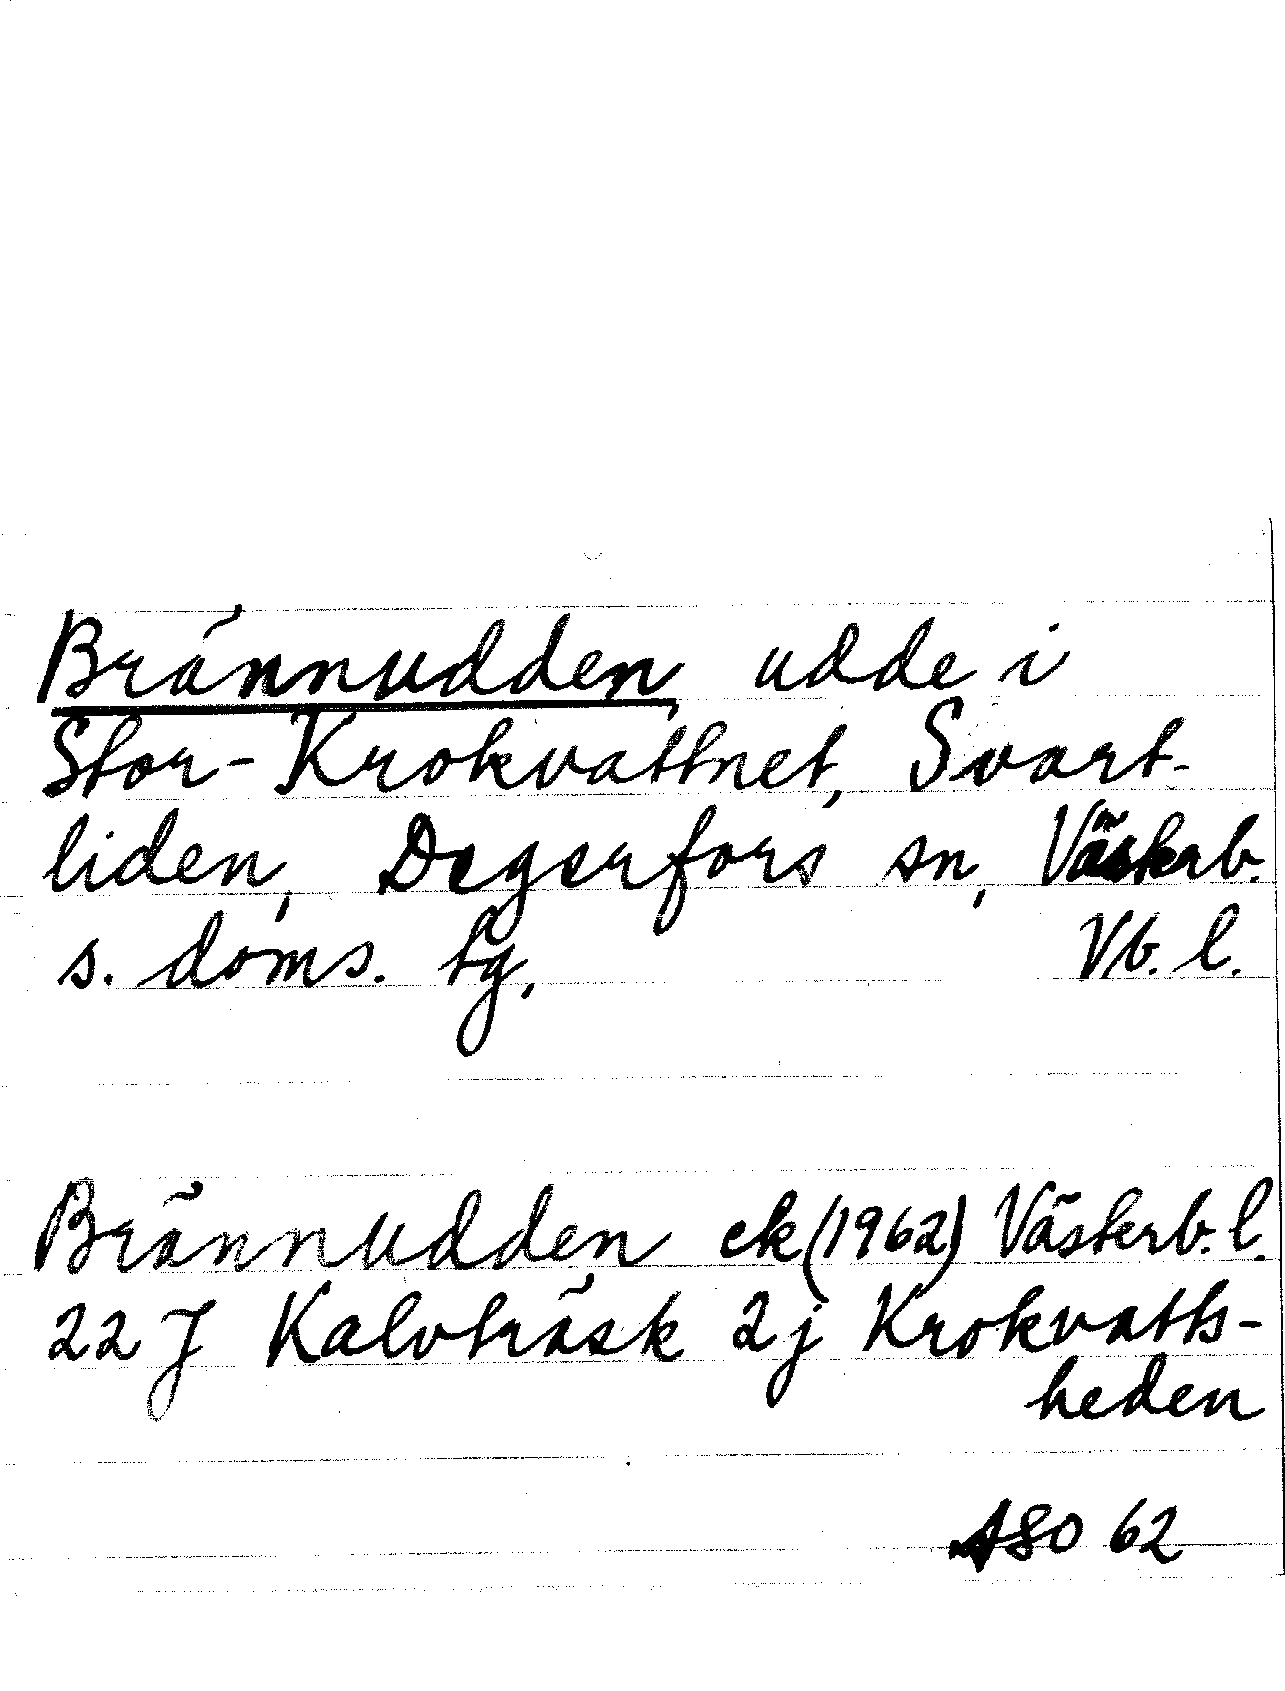 Brännudden udde i
Stor-Krokvattnet, Svart-
liden, Degerfors sn, Västerb.
s. doms. tg, Vb. l.
Brännudden ek (1962) Västerb. l.
22 J Kalvträsk 2j Krokvatts-
heden
ASO 62